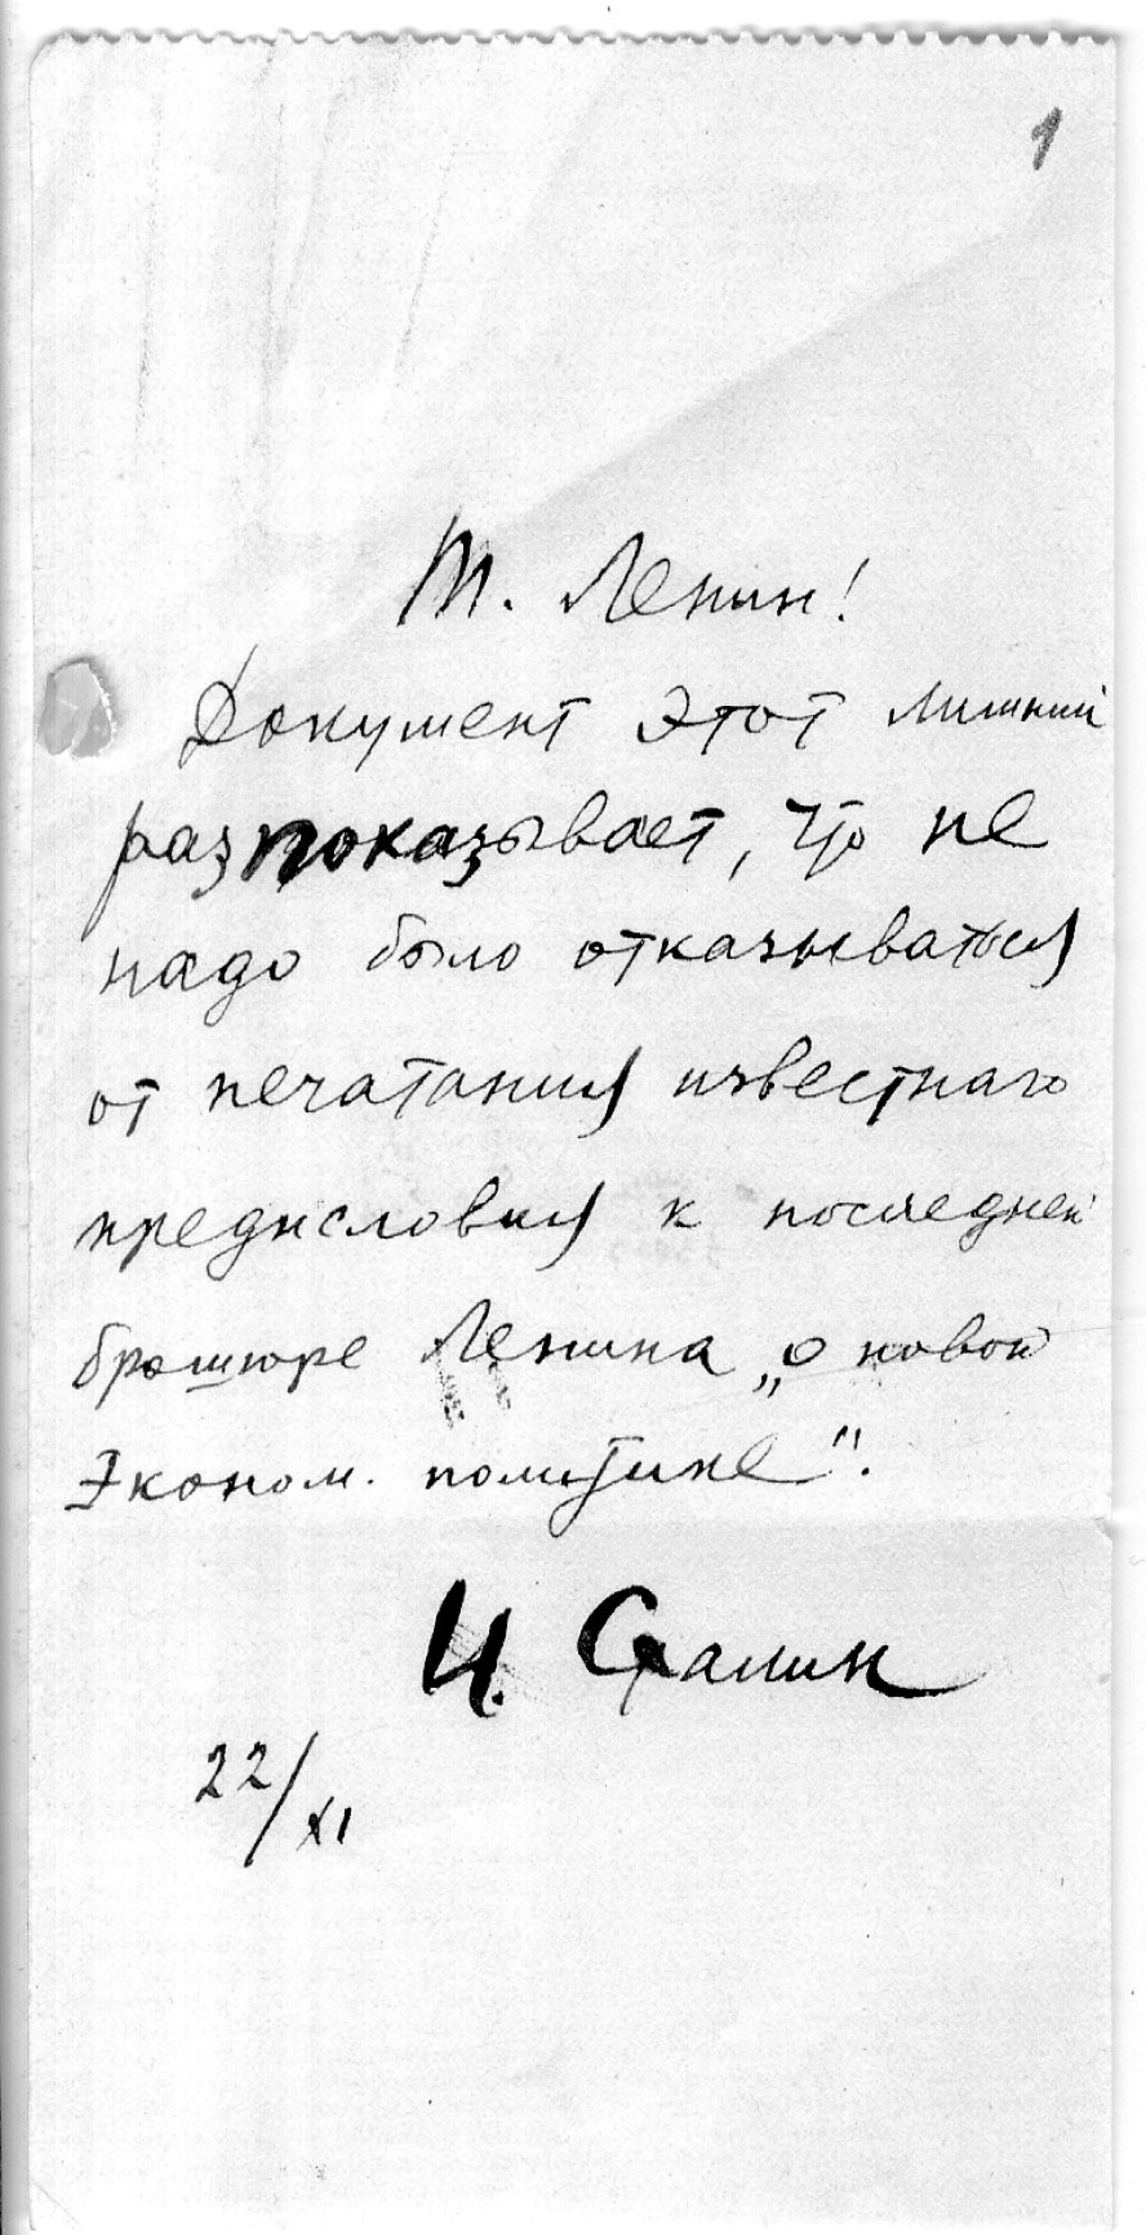 1
Т. Ленин!
Документ этот лишний
раз показывает, что не
надо было отказываться
от печатания известнаго
предисловия к последней
брошюре Ленина „о новой
эконом. политике".
И. Сталин
22/XI